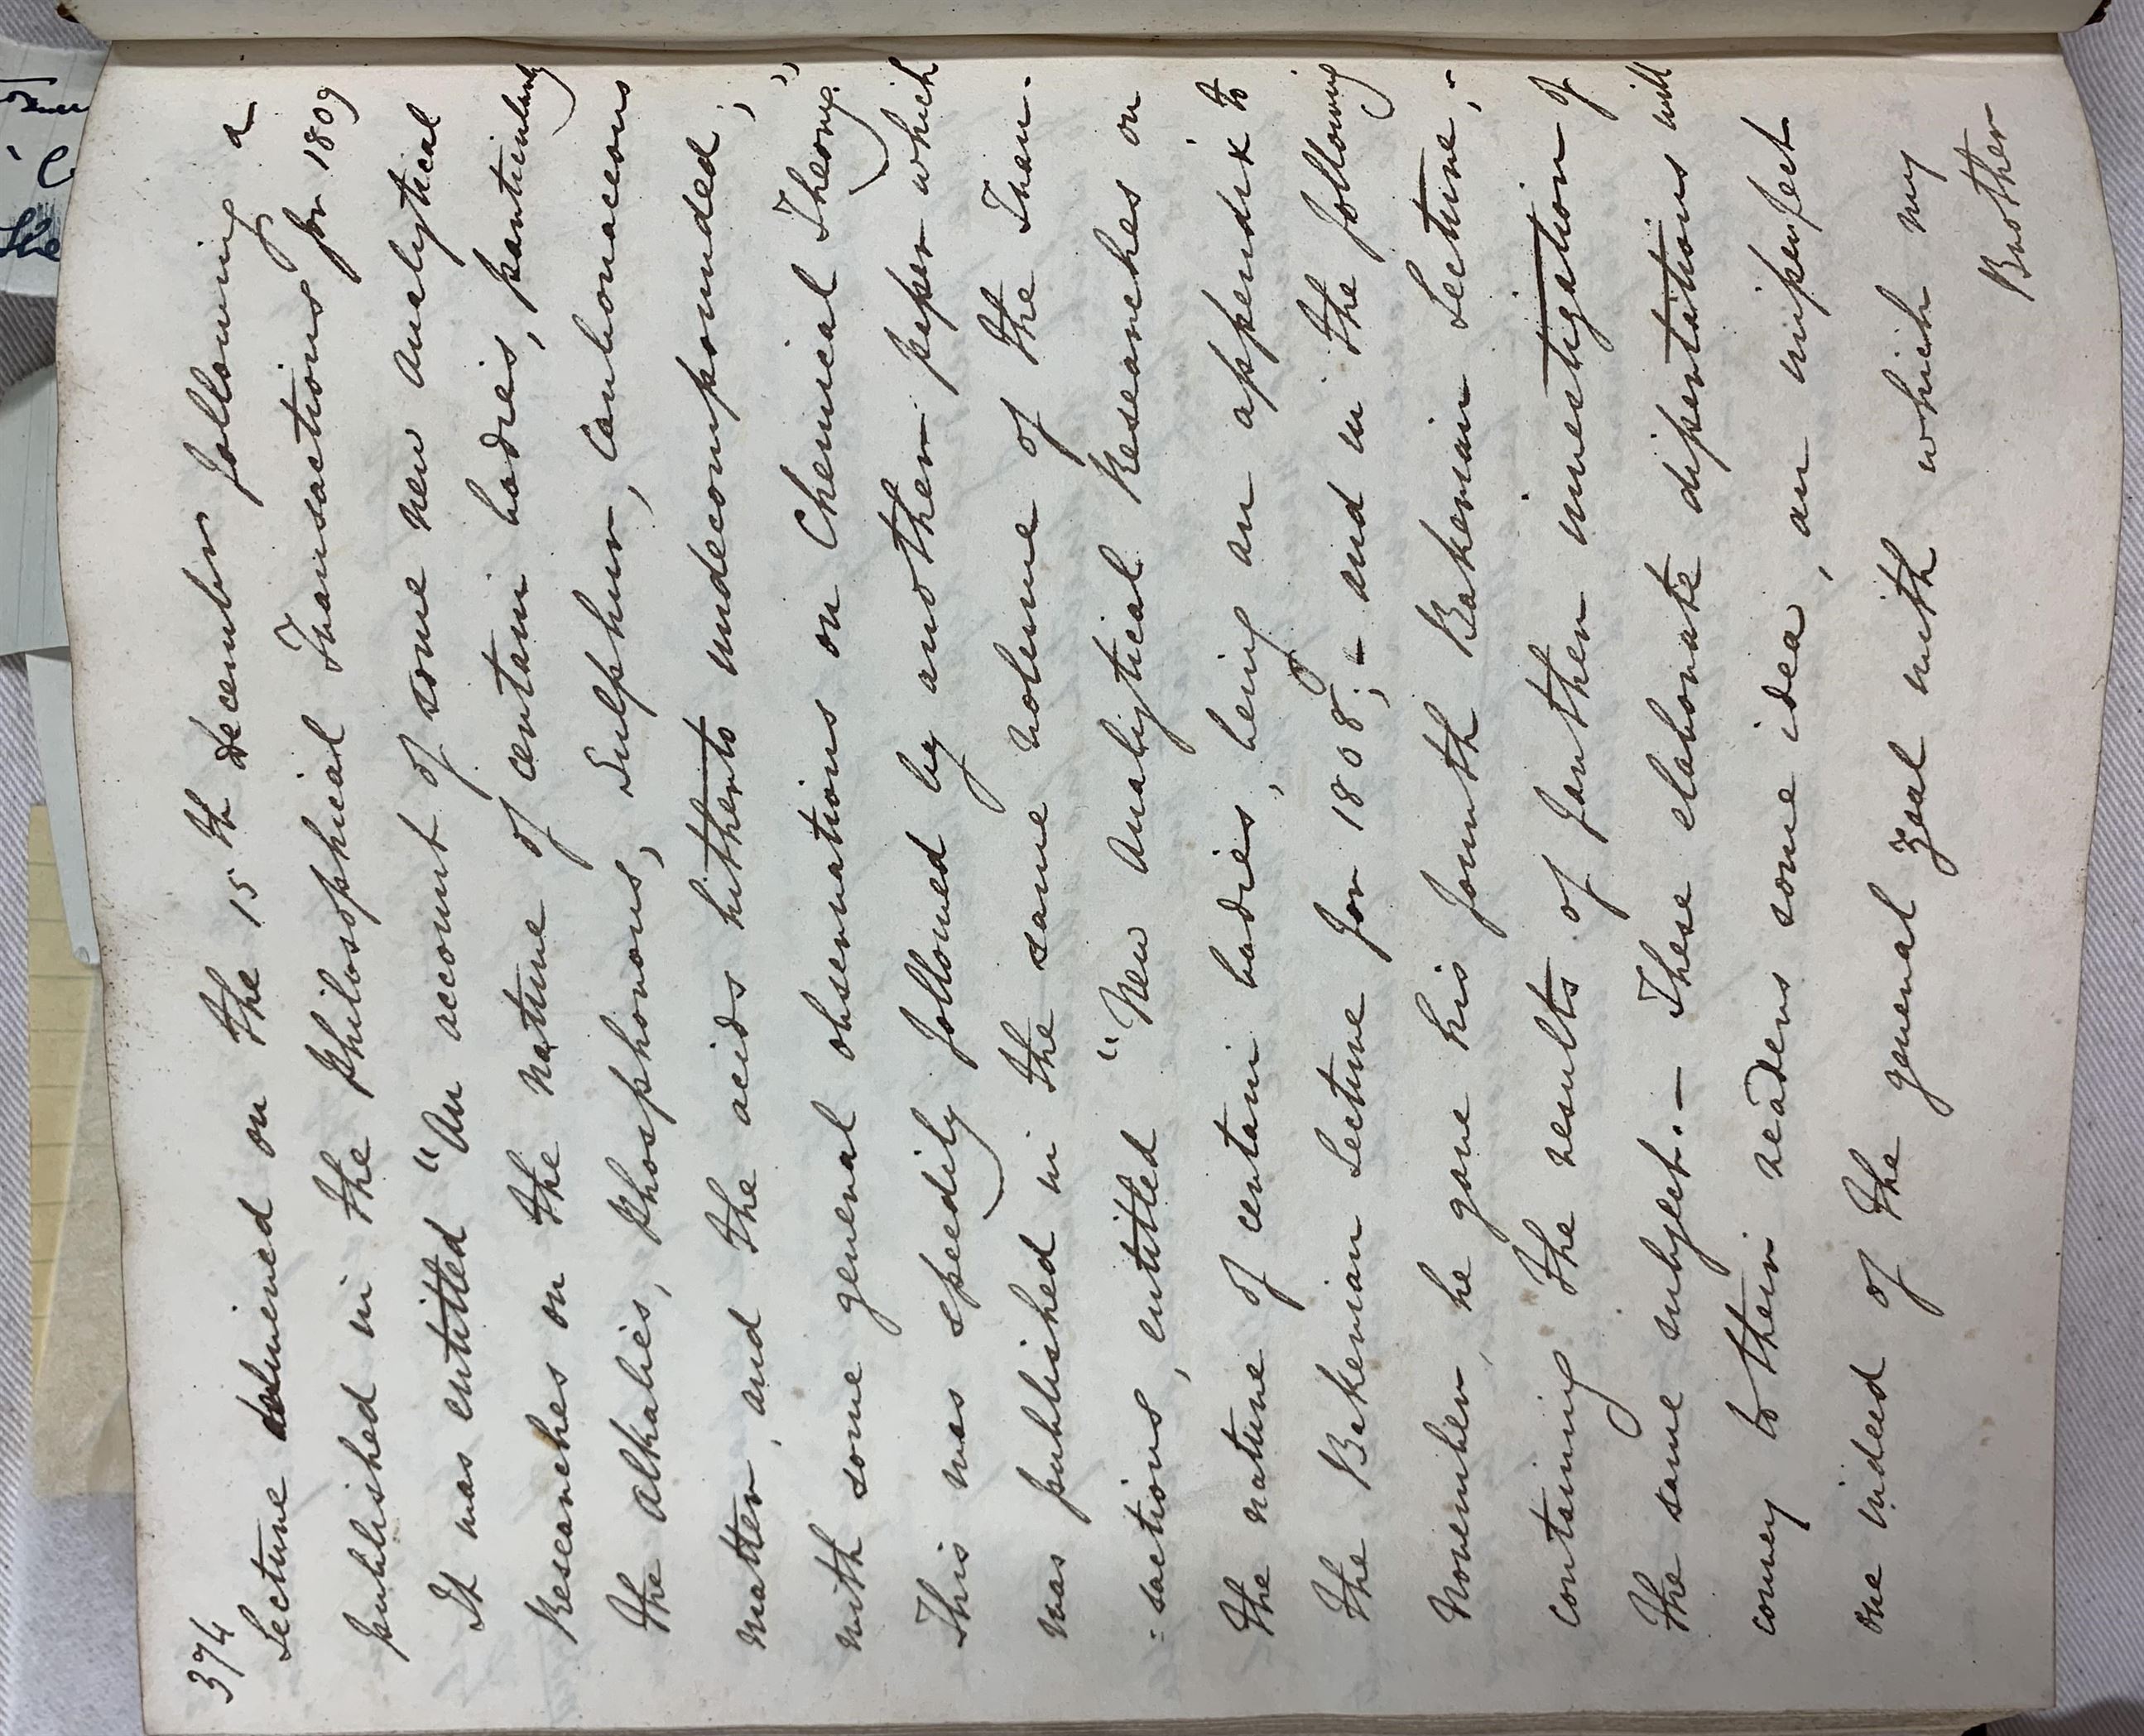 374
Lecture delivered on the 15th December following &
published in the Philosophical Transactions for 1809
It was entitled "An account of some new analytical
Researches on the nature of certain bodies, particularly
the alkalies, Phosphorous, Sulphur, Carbonaceous
matter, and the acids hitherto undecompounded;
with some general observations on Chemical Theory."
This was speedily followed by another paper which
was published in the same volume of the Tran-
=sactions, entitled "New Analytical Researches on
the nature of certain bodies, being an appendix to
the Bakerian Lecture for 1808; - and in the following
November, he gave his fourth Bakerian Lecture, -
containing the results of farther investigation of
the same subject. - These elaborate disertations will
convey to their readers some idea, an imperfect
one indeed of the general zeal with which my
Brother